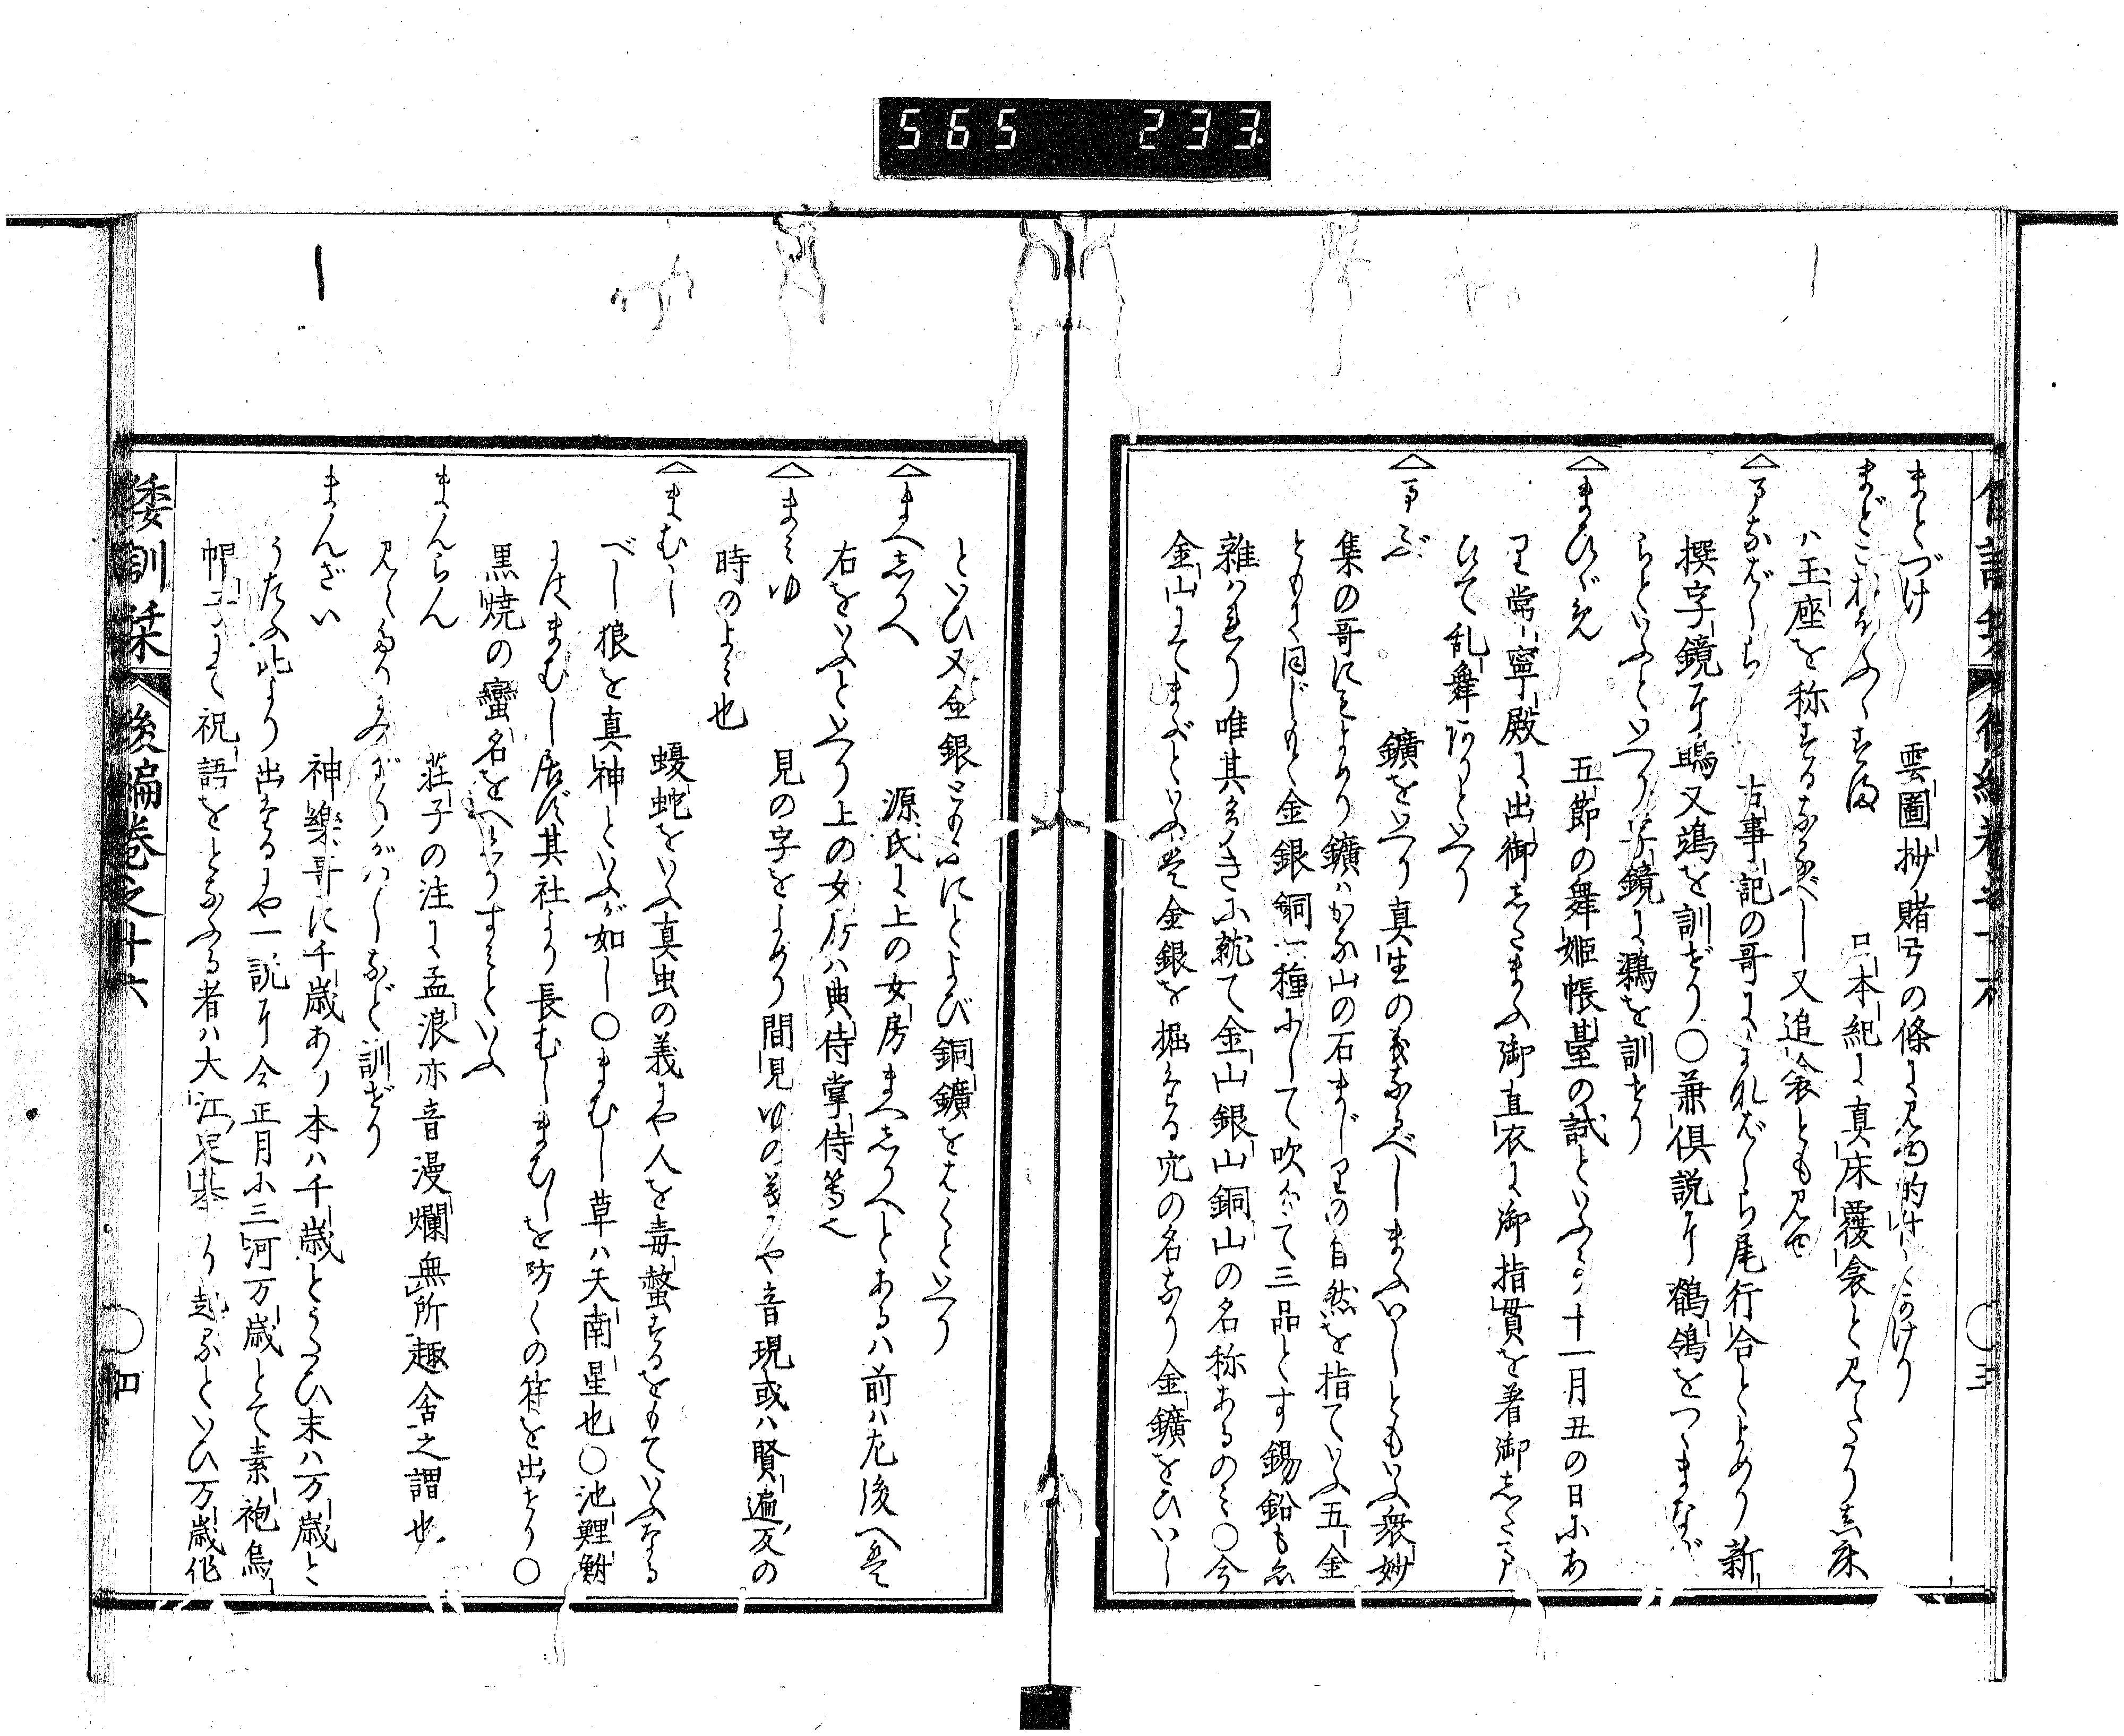 565 233
まとづけ 雲圖抄賭弓の條に見ゆ的付とかけり
まどこおふゝすま 日本紀に真床覆衾と見えたり真床
ハ玉座を称するなるべし又追衾とも見ゆ
△まなばしら 古事記の哥にまなばしら尾行合とよめり新
撰字鏡に鴫又鴗を訓ぜり○兼倶説に鶺鴒をつゝまなば
らといふといへり字鏡に鶏を訓せり
△まひびめ 五節の舞姫帳臺の試といふハ十一月丑の日にあ
り常寧殿に出御したまふ御直衣に御指貫を着御したま
ひて乱舞ありといへり
△まぶ 鑛をいへり真生の義なるべしまぶいしともいふ衆妙
集の哥にみよめり鑛ハかな山の石まじりの自然を指ていふ五金
ともに同じもと金銀銅一種にして吹分て三品とす錫鉛も亦
雑ハれり唯其多きに就て金山銀山銅山の名称あるのミ○今
金山にてまぶといふハ金銀を掘たる穴の名なり金鑛をひいし
といひ又金銀ともににとよび銅鑛をはくといへり
△まへしりへ 源氏に上の女房まへしりへとあるハ前ハ左後ハ
右をいふといへり上の女房ハ典侍掌侍等也
△まみゆ 見の字をよめり間見ゆの義にや音現或ハ賢遍反の
時のよミ也
△まむし 蝮蛇をいふ真虫の義にや人を毒螫するをもていふなる
べし狼を真神といふが如し○まむし草ハ天南星也○池鯉鮒
にはまむし居ず其社より長むしまむしを防くの符を出せり○
黒焼の蠻名をへとりすミといふ
まんらん 荘子の注に孟浪亦音漫爛無所趣舎之謂也
見ゆみだりがハしなど訓ぜり
まんざい 神樂哥に千歳あり本ハ千歳とうたひ末ハ万歳と
うたふ此より出たるにや一説に今正月に三河万歳とて素袍烏
帽子にて祝語をとなふる者ハ大江定基より起るといひ万歳作
倭訓栞 後編巻之十六 ○四